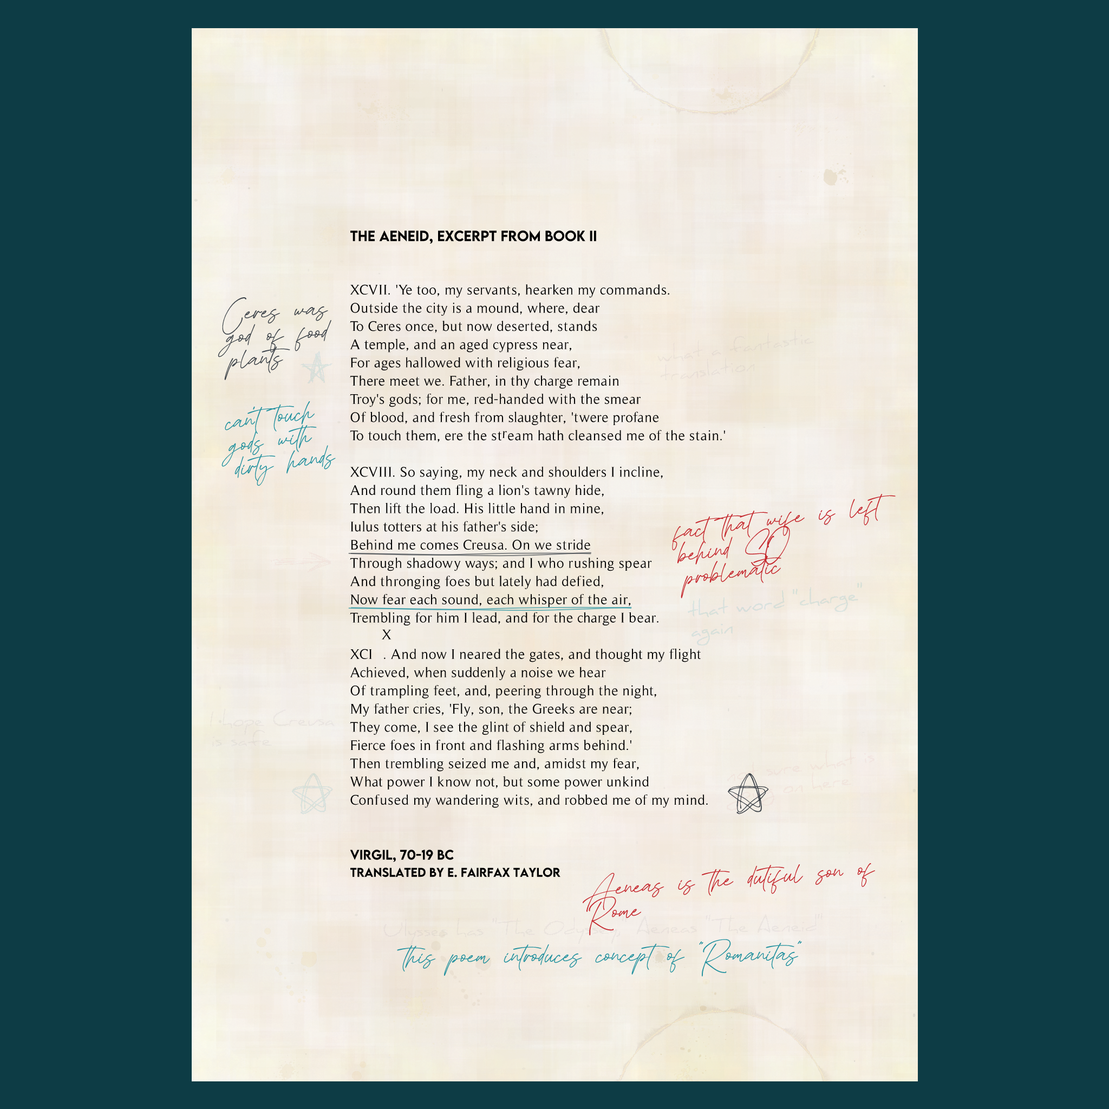 THE AENEID, EXCERPT FROM BOOK II
XCVII. 'Ye too, my servants, hearken my commands.
Outside the city is a mound, where, dear
To Ceres once, but now deserted, stands
A temple, and an aged cypress near,
For ages hallowed with religious fear,
There meet we. Father, in thy charge remain
Troy's gods; for me, red-handed with the smear
Of blood, and fresh from slaughter, 'twere profane
To touch them, ere the stream hath cleansed me of the stain.'
Ceres was
god of food
plants
can't touch
gods with
dirty hands
a fantastic
translation
XCVIII. So saying, my neck and shoulders I incline,
And round them fling a lion's tawny hide,
Then lift the load. His little hand in mine,
Iulus totters at his father's side;
Behind me comes Creusa. On we stride
Through shadowy ways; and I who rushing spear
And thronging foes but lately had defied,
Now fear each sound, each whisper of the air,
Trembling for him I lead, and for the charge I bear.
fact that wife is left
behind SO
problematic
that word "charge"
again
X
XCI . And now I neared the gates, and thought my flight
Achieved, when suddenly a noise we hear
Of trampling feet, and, peering through the night,
My father cries, 'Fly, son, the Greeks are near;
They come, I see the glint of shield and spear,
Fierce foes in front and flashing arms behind.'
Then trembling seized me and, amidst my fear,
What power I know not, but some power unkind
Confused my wandering wits, and robbed me of my mind.
I hope Creusa
is safe
sure what is
here
VIRGIL, 70-19 BC
TRANSLATED BY E. FAIRFAX TAYLOR
Aeneas is the dutiful son of
Rome
Ulysses has "The Odyssey", Aeneas "The Aeneid"
this poem introduces concept of "Romanitas"